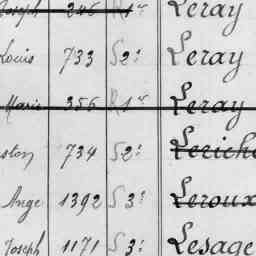 Joseph 246 R1er Leray
Louis 733 S2e Leray
Marie 356 R1er Leray
734 S2e
Ange 1392 S3e Leroux
Joseph 1171 S3e Lesage